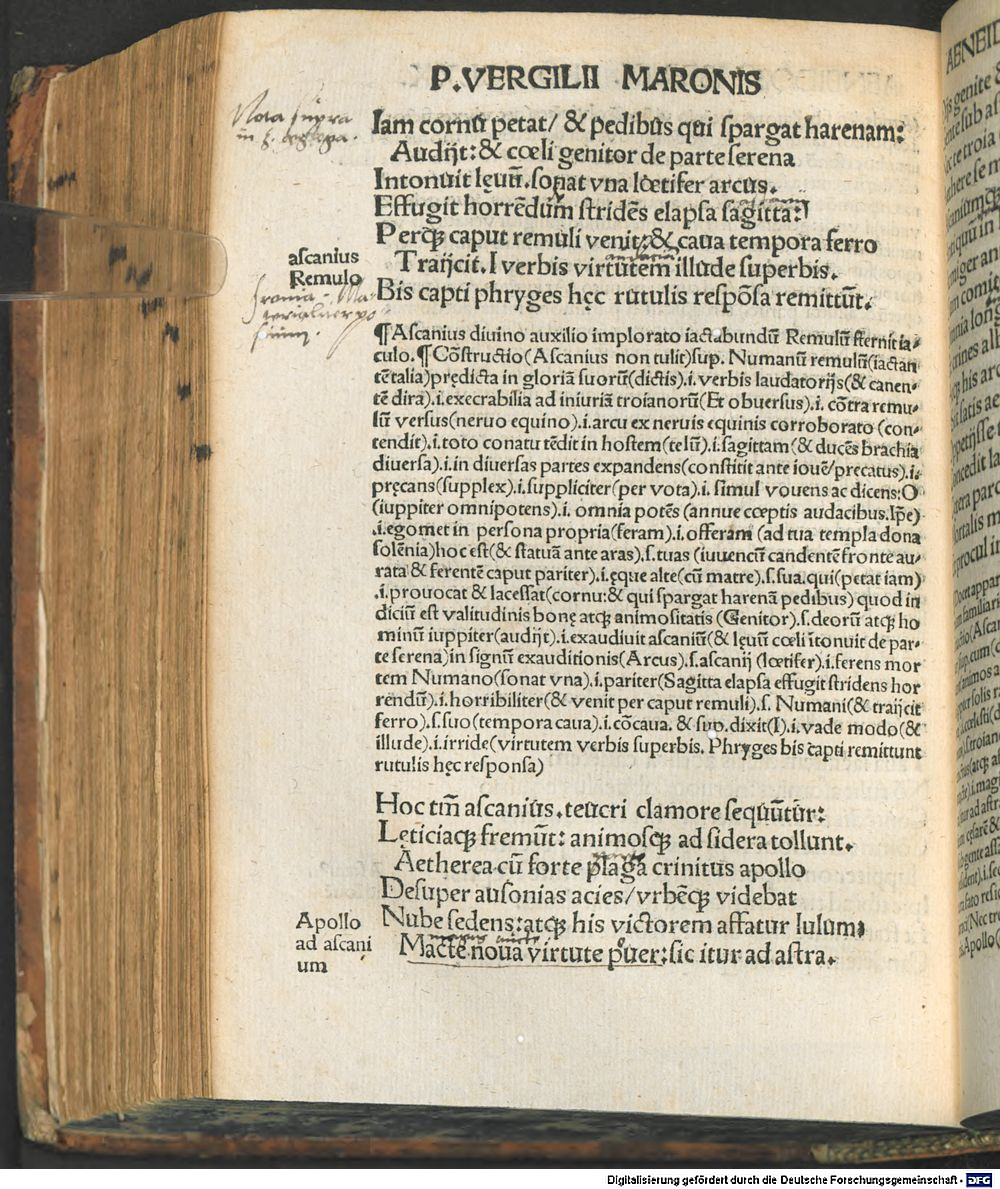 P. VERGILII MARONIS
Nota supra
Iam cornu petat/ & pedibus qui spargat harenam:
Audijt: & cœli genitor de parte serena
Intonuit lęuū. sonat vna lœtifer arcus.
Effugit horrēdum stridēs elapsa sagitta:
Perq; caput remuli venit: & caua tempora ferro
Traijcit. I verbis virtutem illude superbis.
Bis capti phryges hęc rutulis respōsa remittūt.
ascanius
Remulo
¶ Ascanius diuino auxilio implorato iactabundū Remulū sternit ia⸗
culo. ¶ Cōstructio (Ascanius non tulit) sup. Numanū remulū (iactan
tē talia) prędicta in gloriā suorū (dictis) .i. verbis laudatorijs (& canen⸗
tē dira) .i. execrabilia ad iniuriā troianorū (Et obuersus) .i. cōtra remu⸗
lū versus (neruo equino) .i. arcu ex neruis equinis corroborato (con⸗
tendit) .i. toto conatu tēdit in hostem (telū) .i. sagittam (& ducēs brachia
diuersa) .i. in diuersas partes expandens (constitit ante iouē/ precatus) .i.
pręcans (supplex) .i. suppliciter (per vota) .i. simul vouens ac dicens: O
(iuppiter omnipotens) .i. omnia potēs (annue cœptis audacibus. Ip̄e)
.i. egomet in persona propria (feram) .i. offeram (ad tua templa dona
solēnia) hoc est (& statuā ante aras) .s. tuas (iuuencū candentē fronte au⸗
rata & ferentē caput pariter) .i. ęque alte (cū matre) .s. sua. qui (petat iam)
.i. prouocat & lacessat (cornu: & qui spargat harenā pedibus) quod in
diciū est valitudinis bonę atq; animositatis (Genitor) .s. deorū atq; ho
minū iuppiter (audijt) .i. exaudiuit ascaniū (& lęuū cœli ītonuit de par⸗
te serena) in signū exauditionis (Arcus) .s. ascanij (lœtifer) .i. ferens mor
tem Numano (sonat vna) .i. pariter (Sagitta elapsa effugit stridens hor
rendū) .i. horribiliter (& venit per caput remuli) .s. Numani (& traijcit
ferro) .s. suo (tempora caua) .i. cōcaua. & sup. dixit (I) .i. vade modo (&
illude) .i. irride (virtutem verbis superbis. Phryges bis capti remittunt
rutulis hęc responsa)
Hoc tm̄ ascanius. teucri clamore sequūtur:
Lęticiaq; fremūt: animosq; ad sidera tollunt.
Aetherea cū forte plaga crinitus apollo
Desuper ausonias acies/ vrbēq; videbat
Nube sedens: atq; his victorem affatur Iulum:
Macte noua virtute puer: sic itur ad astra.
Apollo
ad ascani
um
Digitalisierung gefördert durch die Deutsche Forschungsgemeinschaft - DFG